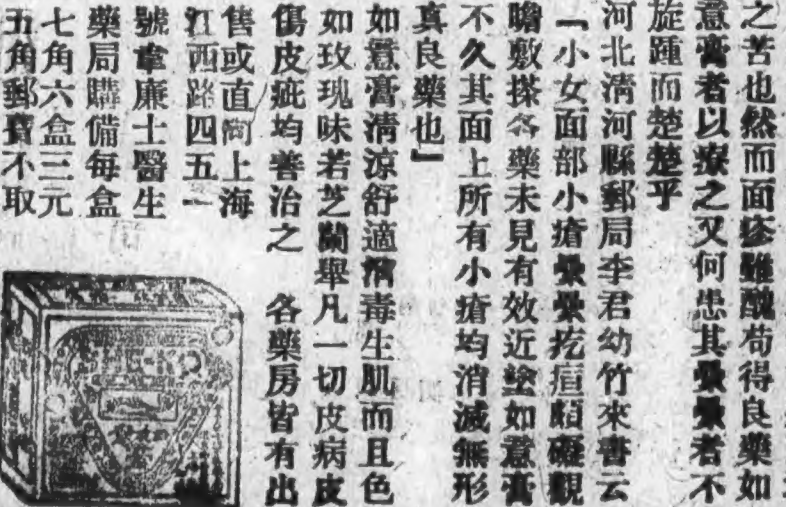 之苦也然而面疹雖醜苟得良藥如
意膏者以療之又何患其纍纍者不
旋踵而楚楚乎
河北清河縣郵局李君幼竹來書云
「小女面部小瘡纍纍疙疸頗礙觀
瞻敷搽各藥未見有效近塗如意膏
不久其面上所有小瘡均消滅無形
真良藥也」
如意膏清涼舒適消毒生肌而且色
如玫瑰味若芝蘭舉凡一切皮病皮
傷皮疵均善治之 各藥房皆有出
售或直向上海
江西路四五一
號韋廉士醫生
藥局購備每盒
七角六盒三元
五角郵費不取